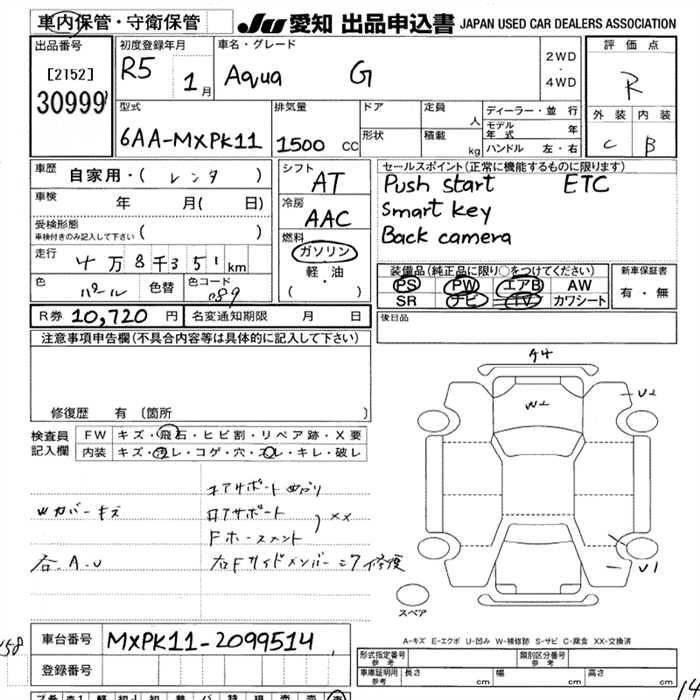 車内保管・守衛保管
JU 愛知 出品申込書 JAPAN USED CAR DEALERS ASSOCIATION
出品番号
[2152]
30999
初度登録年月
R5 1月
車名・グレード
Aqua G
2WD
・
4WD
評価点
R
外装 内装
C B
型式
6AA-MXPK11
排気量
1500 CC
ドア
形状
定員 人
積載 kg
ディーラー・並行
モデル年式 年
ハンドル 左・右
車歴
自家用・( レンタ )
車検 年 月( 日)
受検形態
車検付きのみ記入して下さい ( )
走行
十万8千351km
色 パール 色替 色コード 089
シフト
AT
冷房
AAC
燃料
ガソリン
軽・油
( ・ )
セールスポイント(正常に機能するものに限ります)
Push start ETC
Smart key
Back camera
装備品(純正品に限り○をつけてください)
PS PW エアB AW
SR ナビ TV カワシート
新車保証書
有・無
R券 10,720 円
名変通知期限 月 日
後日品
注意事項申告欄(不具合内容等は具体的に記入して下さい)
修復歴 有(箇所
検査員
記入欄
FW キズ・飛石・ヒビ割・リペア跡・X要
内装 キズ・汚レ・コゲ・穴・スレ・キレ・破レ
コアサポート
ロアサポート
XX
カバーキズ
右Fサイドメンバー
A4
W2
U2
U1
スペア
A-キズ E-エクボ U-凹み W-補修跡 S-サビ C-腐食 XX-交換済
車台番号
MXPK11-2099514
登録番号
形式指定番号
参考
類別区分番号
参考
車庫証明用
参考
長さ cm
幅 cm
高さ cm
14